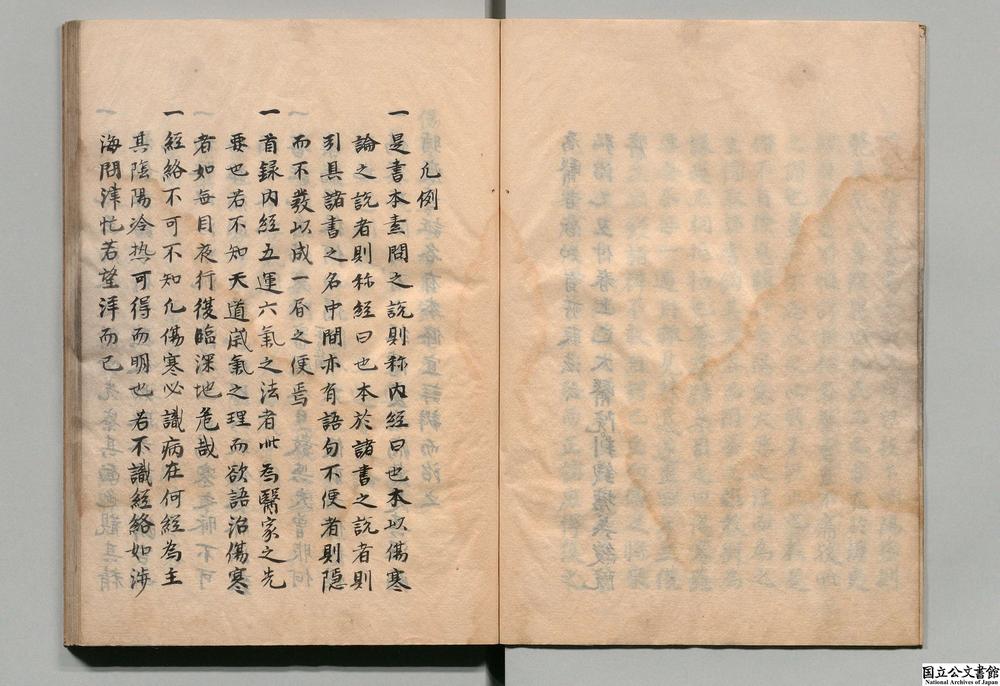 凡例
一是書本素問之説則称内經曰也本以傷寒
論之説者則称經曰也本於諸書之説者則
引具諸書之名中間亦有語句不便者則隱
而不發以成一帋之便焉
一首録内經五運六氣之法者此為醫家之先
要也若不知天道歳氣之理而欲語治傷寒
者如毎目夜行復臨深地危哉
一經絡不可不知凡傷寒必識病在何經為主
其陰陽冷热可得而明也若不識經絡如渉
海問津忙若望洋而已
国立公文書館
National Archives of Japan